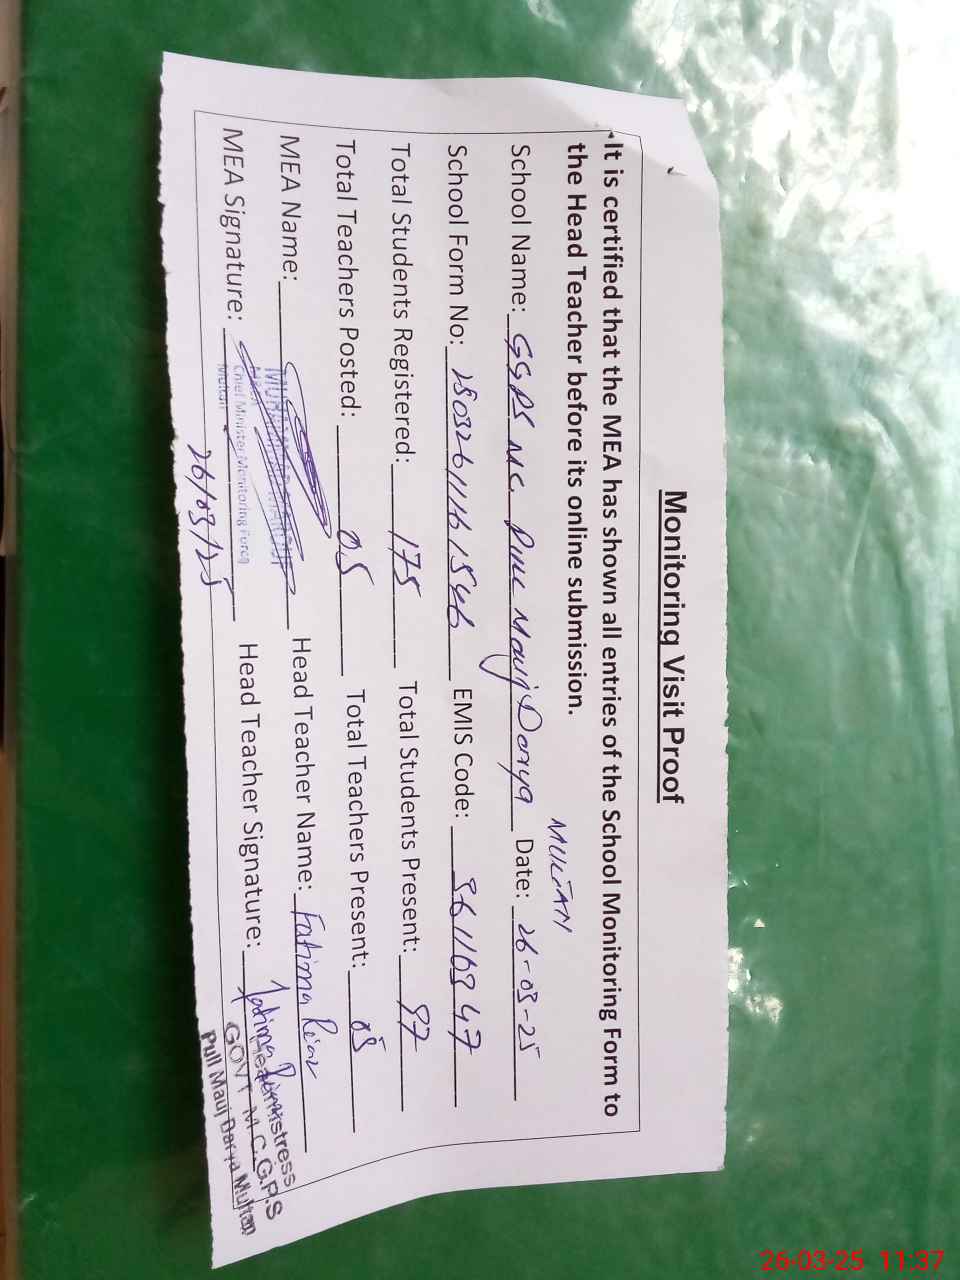 Monitoring Visit Proof
It is certified that the MEA has shown all entries of the School Monitoring Form to
the Head Teacher before its online submission.
MULTAN
School Name: GGPS M.C. Pull Mauj Darya Date: 26-03-25
School Form No: Total Students Registered: 175 Total Students Present: 97
EMIS Code:
Total Teachers Posted: 05 Total Teachers Present: 05
MEA Name: Head Teacher Name: Fatima Riaz
MEA Signature: Head Teacher Signature: Fatima
Chief Minister Monitoring Force
Multan
26/03/25
Headmistress
GOVT M.C.G.P.S
Pull Mauj Darya Multan
26-03-25 11:37